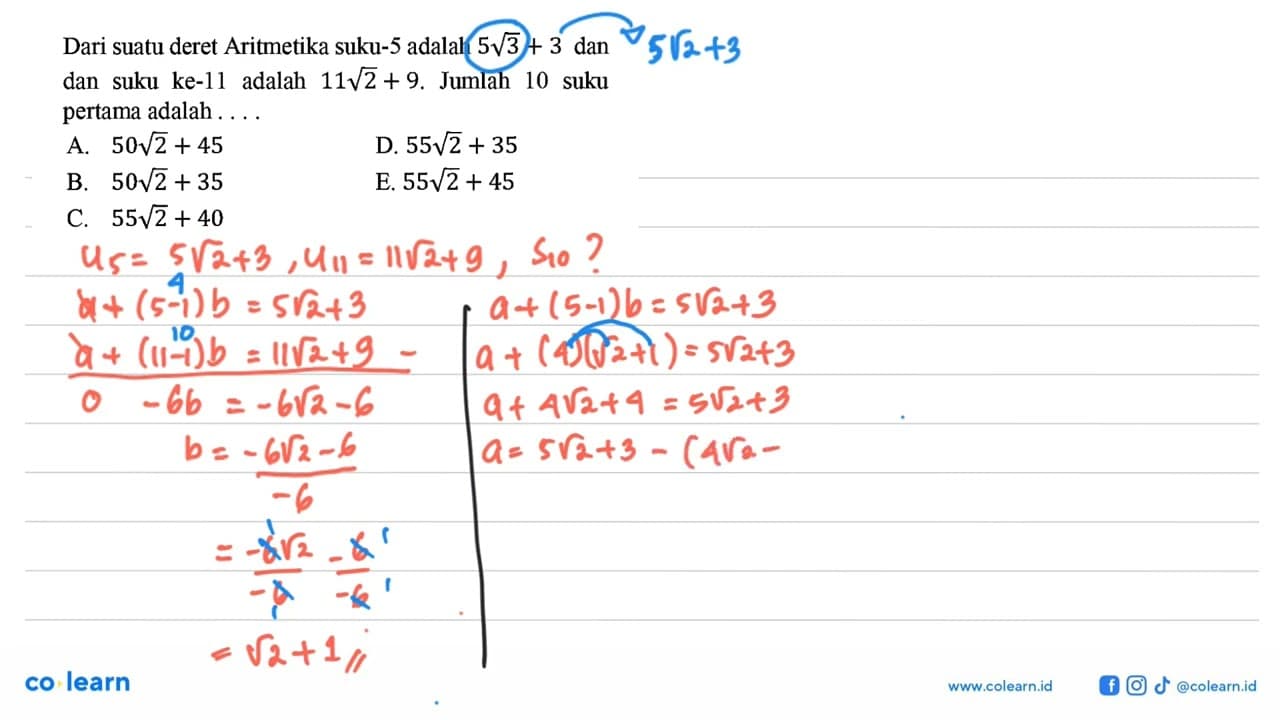 Dari suatu deret Aritmetika suku-5 adalah 5√3 + 3 dan 5√2+3
dan suku ke-11 adalah 11√2 + 9. Jumlah 10 suku
pertama adalah . . . .
A. 50√2 + 45 D. 55√2 + 35
B. 50√2 + 35 E. 55√2 + 45
C. 55√2 + 40
U5 = 5√2+3 , U11 = 11√2+9 , S10 ?
4
a + (5-1)b = 5√2+3
10
a + (11-1)b = 11√2+9 -
0 -6b = -6√2 - 6
b = -6√2 - 6
-6
1 1
= -6√2 - 6
-6 -6
1 1
= √2 + 1 //
a + (5-1)b = 5√2+3
a + (4)(√2+1) = 5√2+3
a + 4√2+4 = 5√2+3
a = 5√2+3 - (4√2 -
co learn www.colearn.id @colearn.id